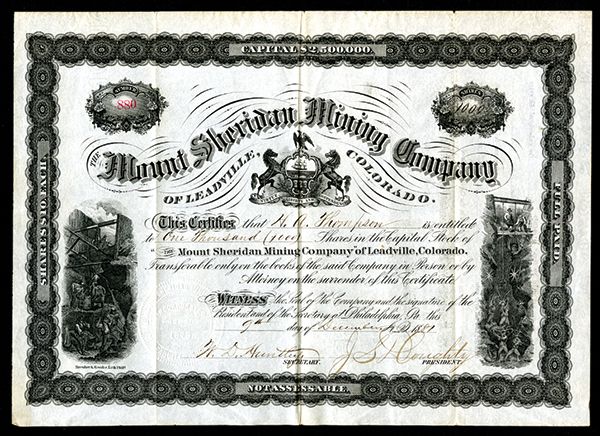 CAPITAL $2,500,000.
NUMBER
880
SHARES
1000
THE
Mount Sheridan Mining Company
OF LEADVILLE, COLORADO.
SHARES $10. EACH.
FULL PAID
This Certifies that A. Thompson is entitled
to One Thousand (1000) Shares in the Capital Stock of
THE MOUNT SHERIDAN MINING COMPANY of LEADVILLE, COLORADO.
Transferable only on the books of the said Company in Person or by
Attorney on the surrender of this Certificate
WITNESS the Seal of the Company and the signature of the
President and of the Secretary at Philadelphia, Pa. this
9th day of December A.D. 1881
SECRETARY.
PRESIDENT.
NOT ASSESSABLE.